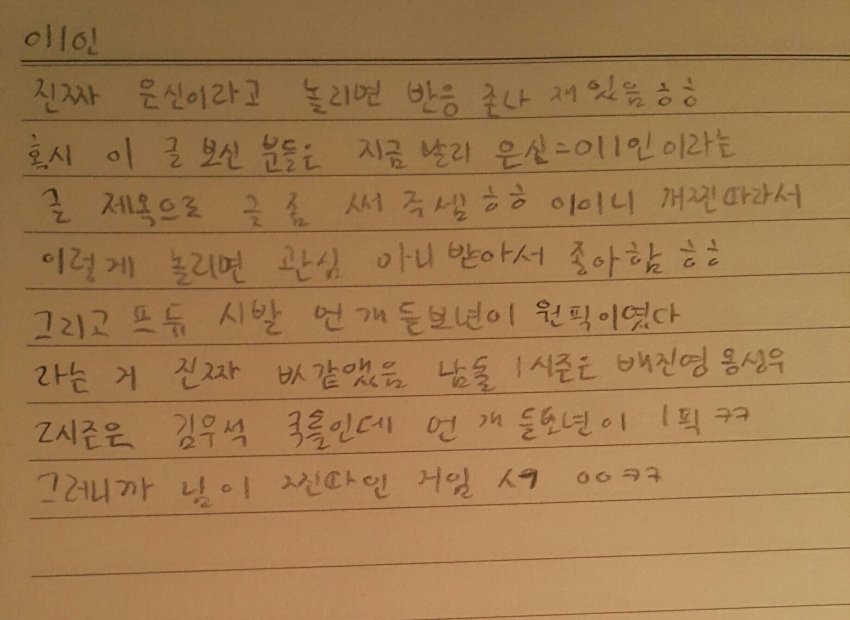 이1인
진짜 은신이라고 놀리면 반응 존나 재있음ㅎㅎ
혹시 이 글 보신 분들은 지금 빨리 은신=이1인이라는
글 제목으로 글 좀 써 주셈ㅎㅎ 이이니 개찐따라서
이렇게 놀리면 관심 마니 받아서 좋아함 ㅎㅎ
그리고 프듀 시발 언 개듣보년이 원픽이였다
라는 거 진짜 같앴음 남돌 1시즌은 배진영 옹성우
2시즌은 김우석 국룰인데 언 개 듣보년이 1픽ㅋㅋ
그러니까 님이 찐따인 거임 ㅇㅇㅋㅋ